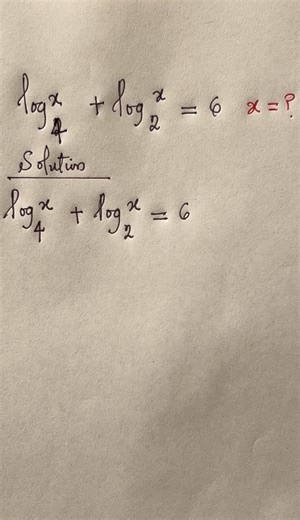 log₄ˣ + log₂ˣ = 6 x = ?
Solution
log₄ˣ + log₂ˣ = 6